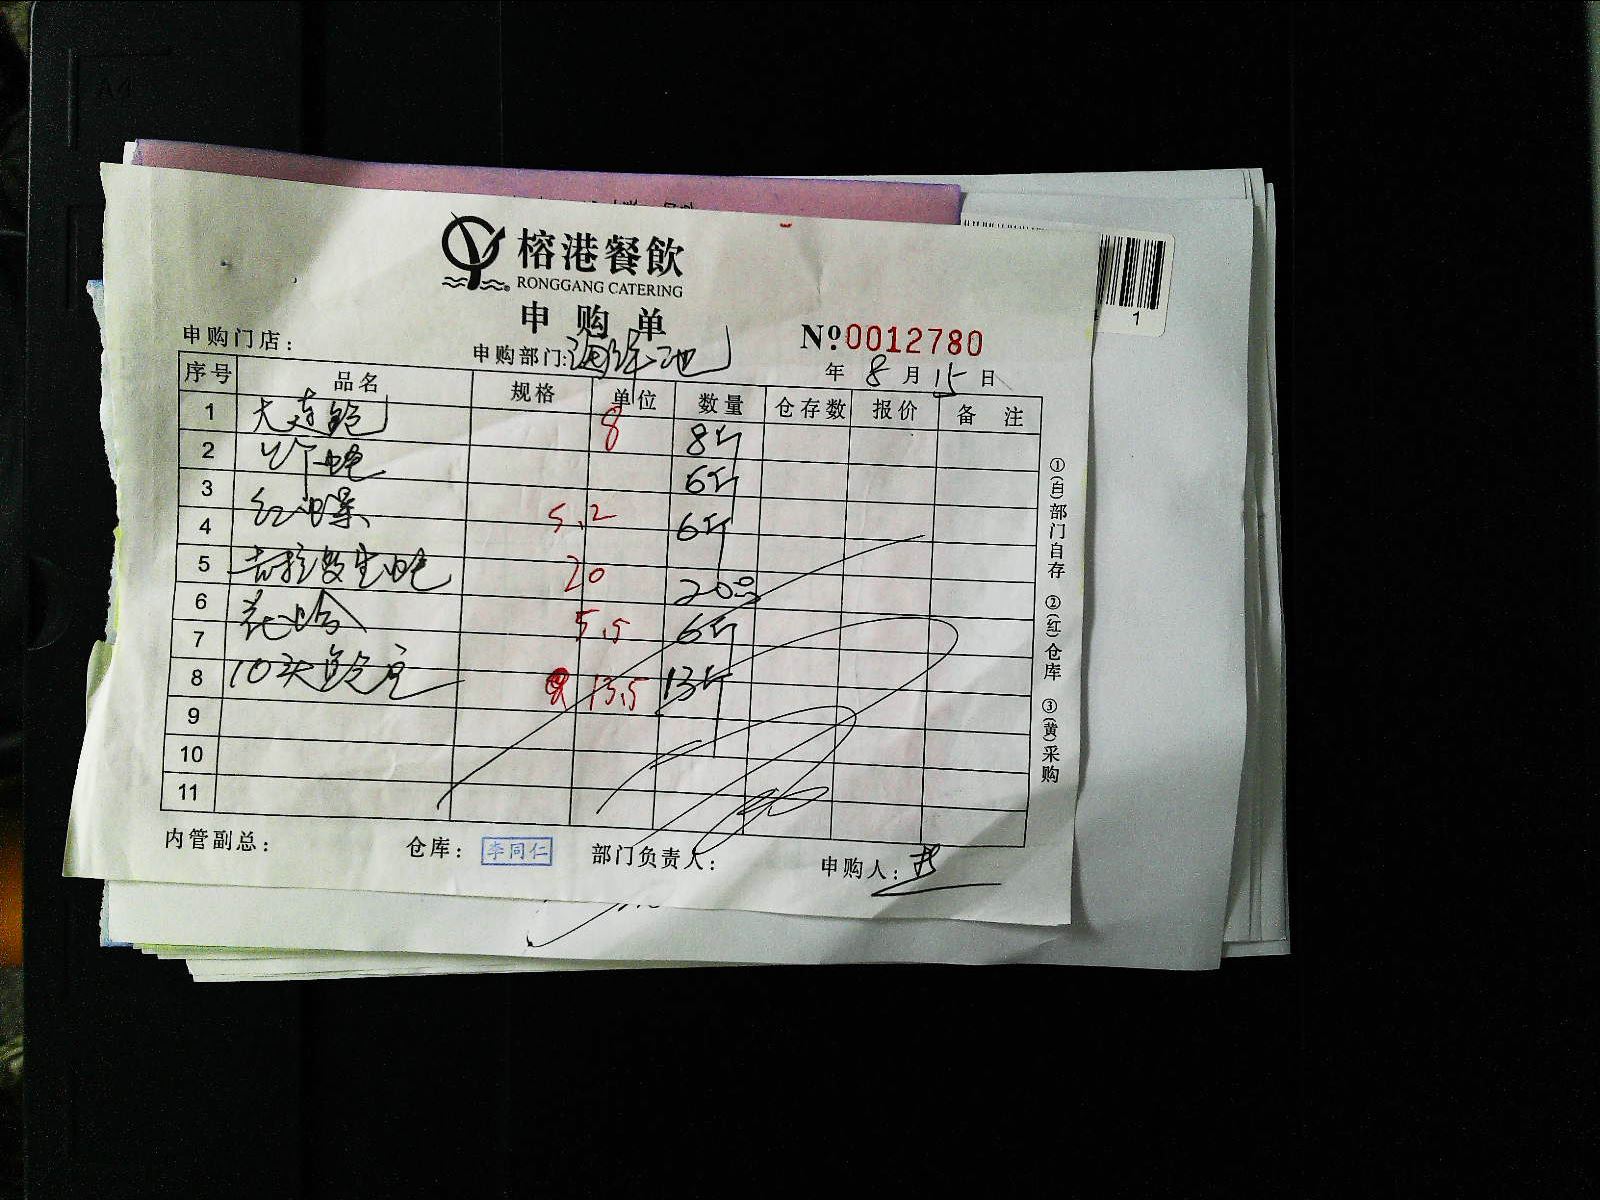 榕港餐飲
RONGGANG CATERING
申购单
№0012780
申购门店：
申购部门：海鲜池
年 8 月 15 日
序号 品名 规格 单位 数量 仓存数 报价 备注
1 大连鲍 8 8斤
2 6斤
3 红螺 5.2 6斤
4
5 吉拉多生蚝 20 20只
6 花蛤 5.5 6斤
7
8 10头鲍 13.5 13斤
9
10
11
①(白)部门自存 ②(红)仓库 ③(黄)采购
内管副总： 仓库：李同仁 部门负责人： 申购人：
1